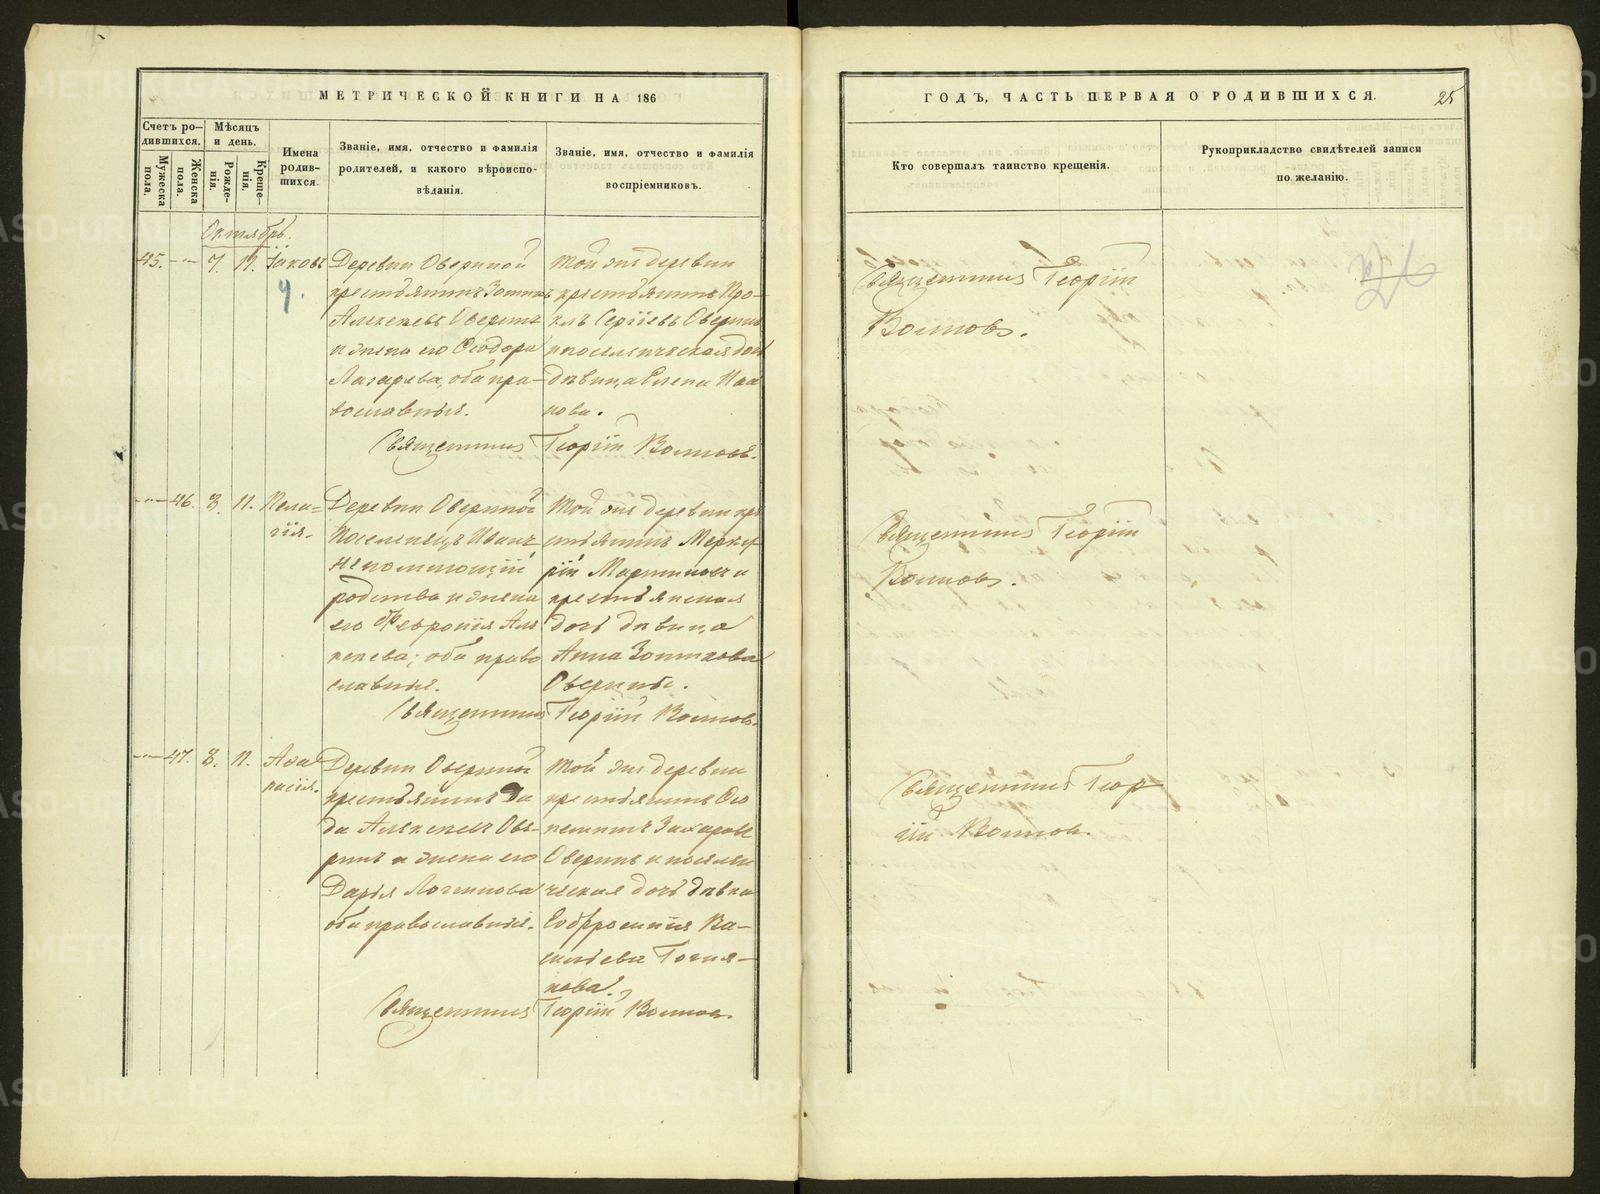 МЕТРИЧЕСКОЙ КНИГИ НА 186
Счетъ ро-
дившихся.
Мѣсяцъ
и день.
Мужеска пола.
Женска пола.
Рожде-нія.
Креще-нія.
Имена
родив-
шихся.
Званіе, имя, отчество и фамилія
родителей, и какого вѣроиспо-
вѣданія.
Званіе, имя, отчество и фамилія
воспріемниковъ.
Октябрь.
45. 7. 11. Іаковъ
Деревни Овериной
крестьянинъ Зотикъ
Алексѣевъ Оверинъ
и жена его Ѳеодора
Лазарева, оба пра-
вославныя.
Той же деревни
крестьянинъ Про-
клъ Сергіевъ Оверинъ
и поселенческая дочь
дѣвица Елена Ива
нова.
Священникъ Георгій Волковъ.
46. 8. 11. Пела-
гія.
Деревни Овериной
Поселенецъ Иванъ
Непомнющій
родства и жена
его Февронія Але
ксѣева; оба право
славныя.
Той же деревни кре
стьянинъ Мерку
рій Мартиновъ и
крестьянская
дочь дѣвица
Анна Зотикова
Оверины.
Священникъ Георгій Волковъ.
47. 8. 11. Аѳа
насія.
Деревни Овериной
крестьянинъ
Алексѣевъ Ове-
ринъ и жена его
Дарія Логинова
оба православныя.
Той же деревни
крестьянинъ Ѳео
Захаровъ
Оверинъ и поселен
ческая дочь дѣвка
Софронія Ва-
сильева
нова.
Священникъ Георгій Волковъ.
ГОДЪ, ЧАСТЬ ПЕРВАЯ О РОДИВШИХСЯ.
25
Кто совершалъ таинство крещенія.
Рукоприкладство свидѣтелей записи
по желанію.
Священникъ Георгій
Волковъ.
Священникъ Георгій
Волковъ.
Священникъ Геор
гій Волковъ.
METRIKI.GASO-URAL.RU